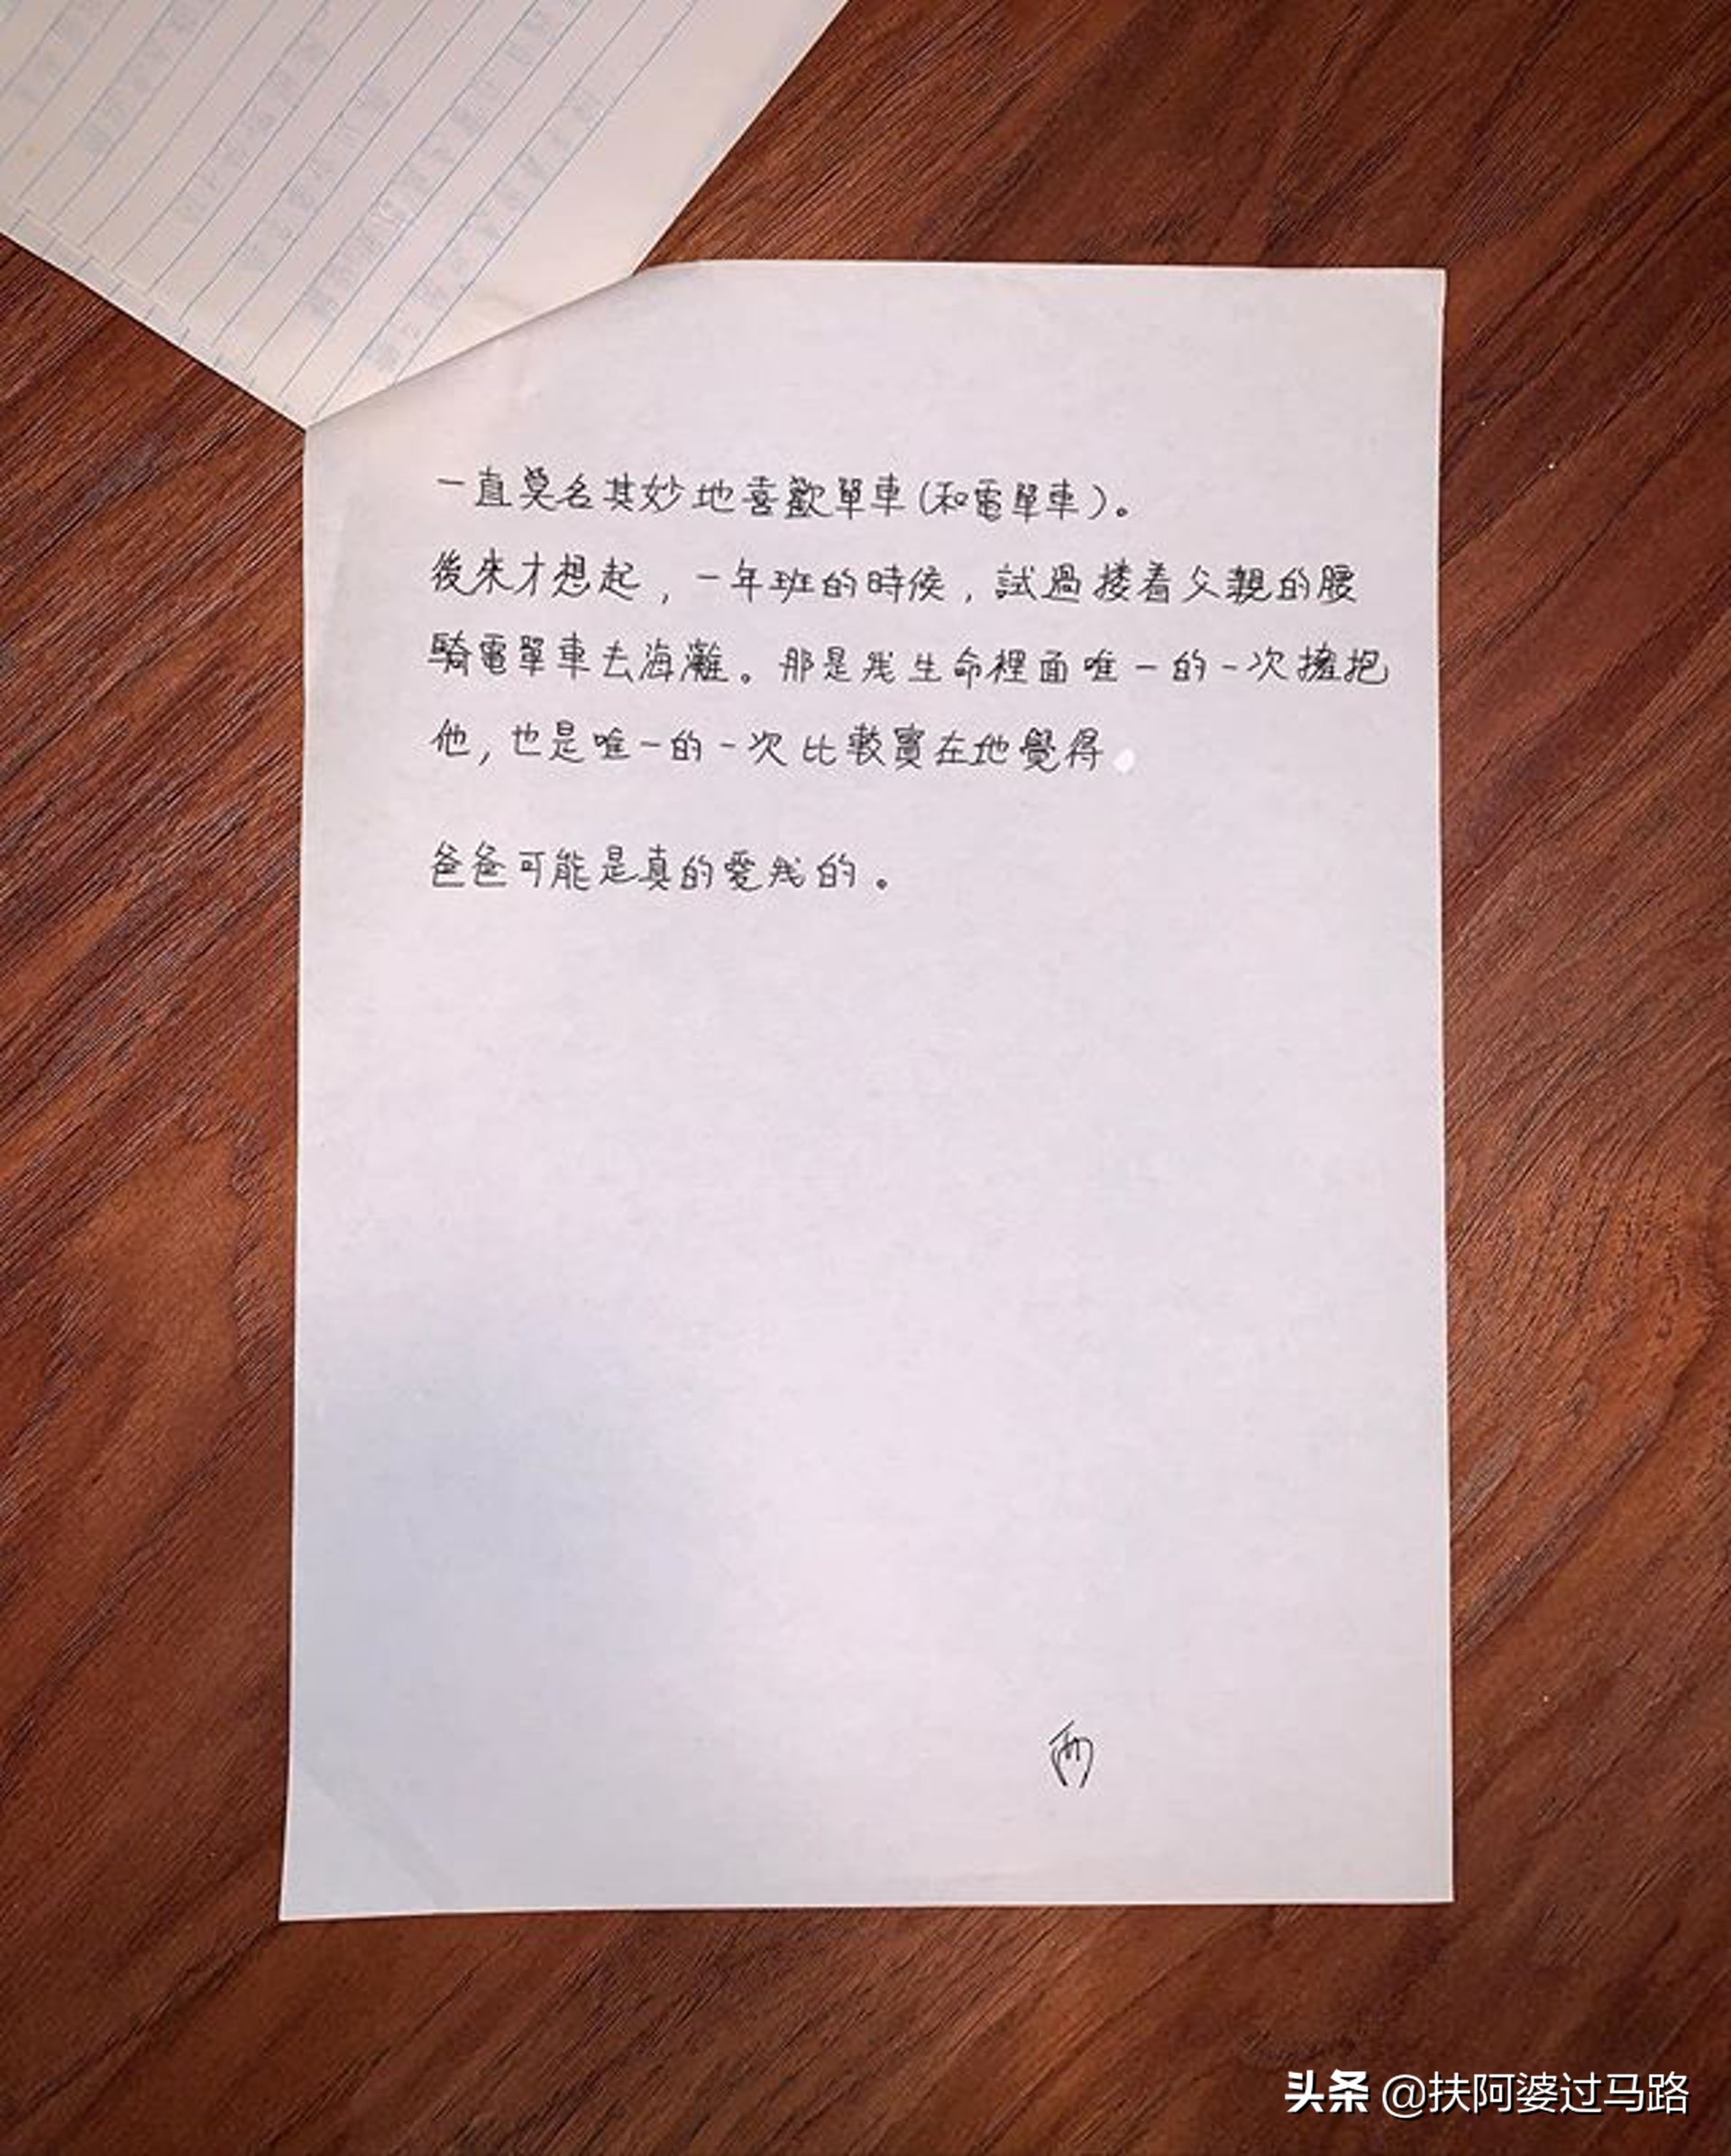 一直莫名其妙地喜歡單車(和電單車)。
後來才想起，一年班的時候，試過摟着父親的腰
騎電單車去海灘。那是我生命裡面唯一的一次擁抱
他，也是唯一的一次比較實在地覺得
爸爸可能是真的愛我的。
头条 @扶阿婆过马路